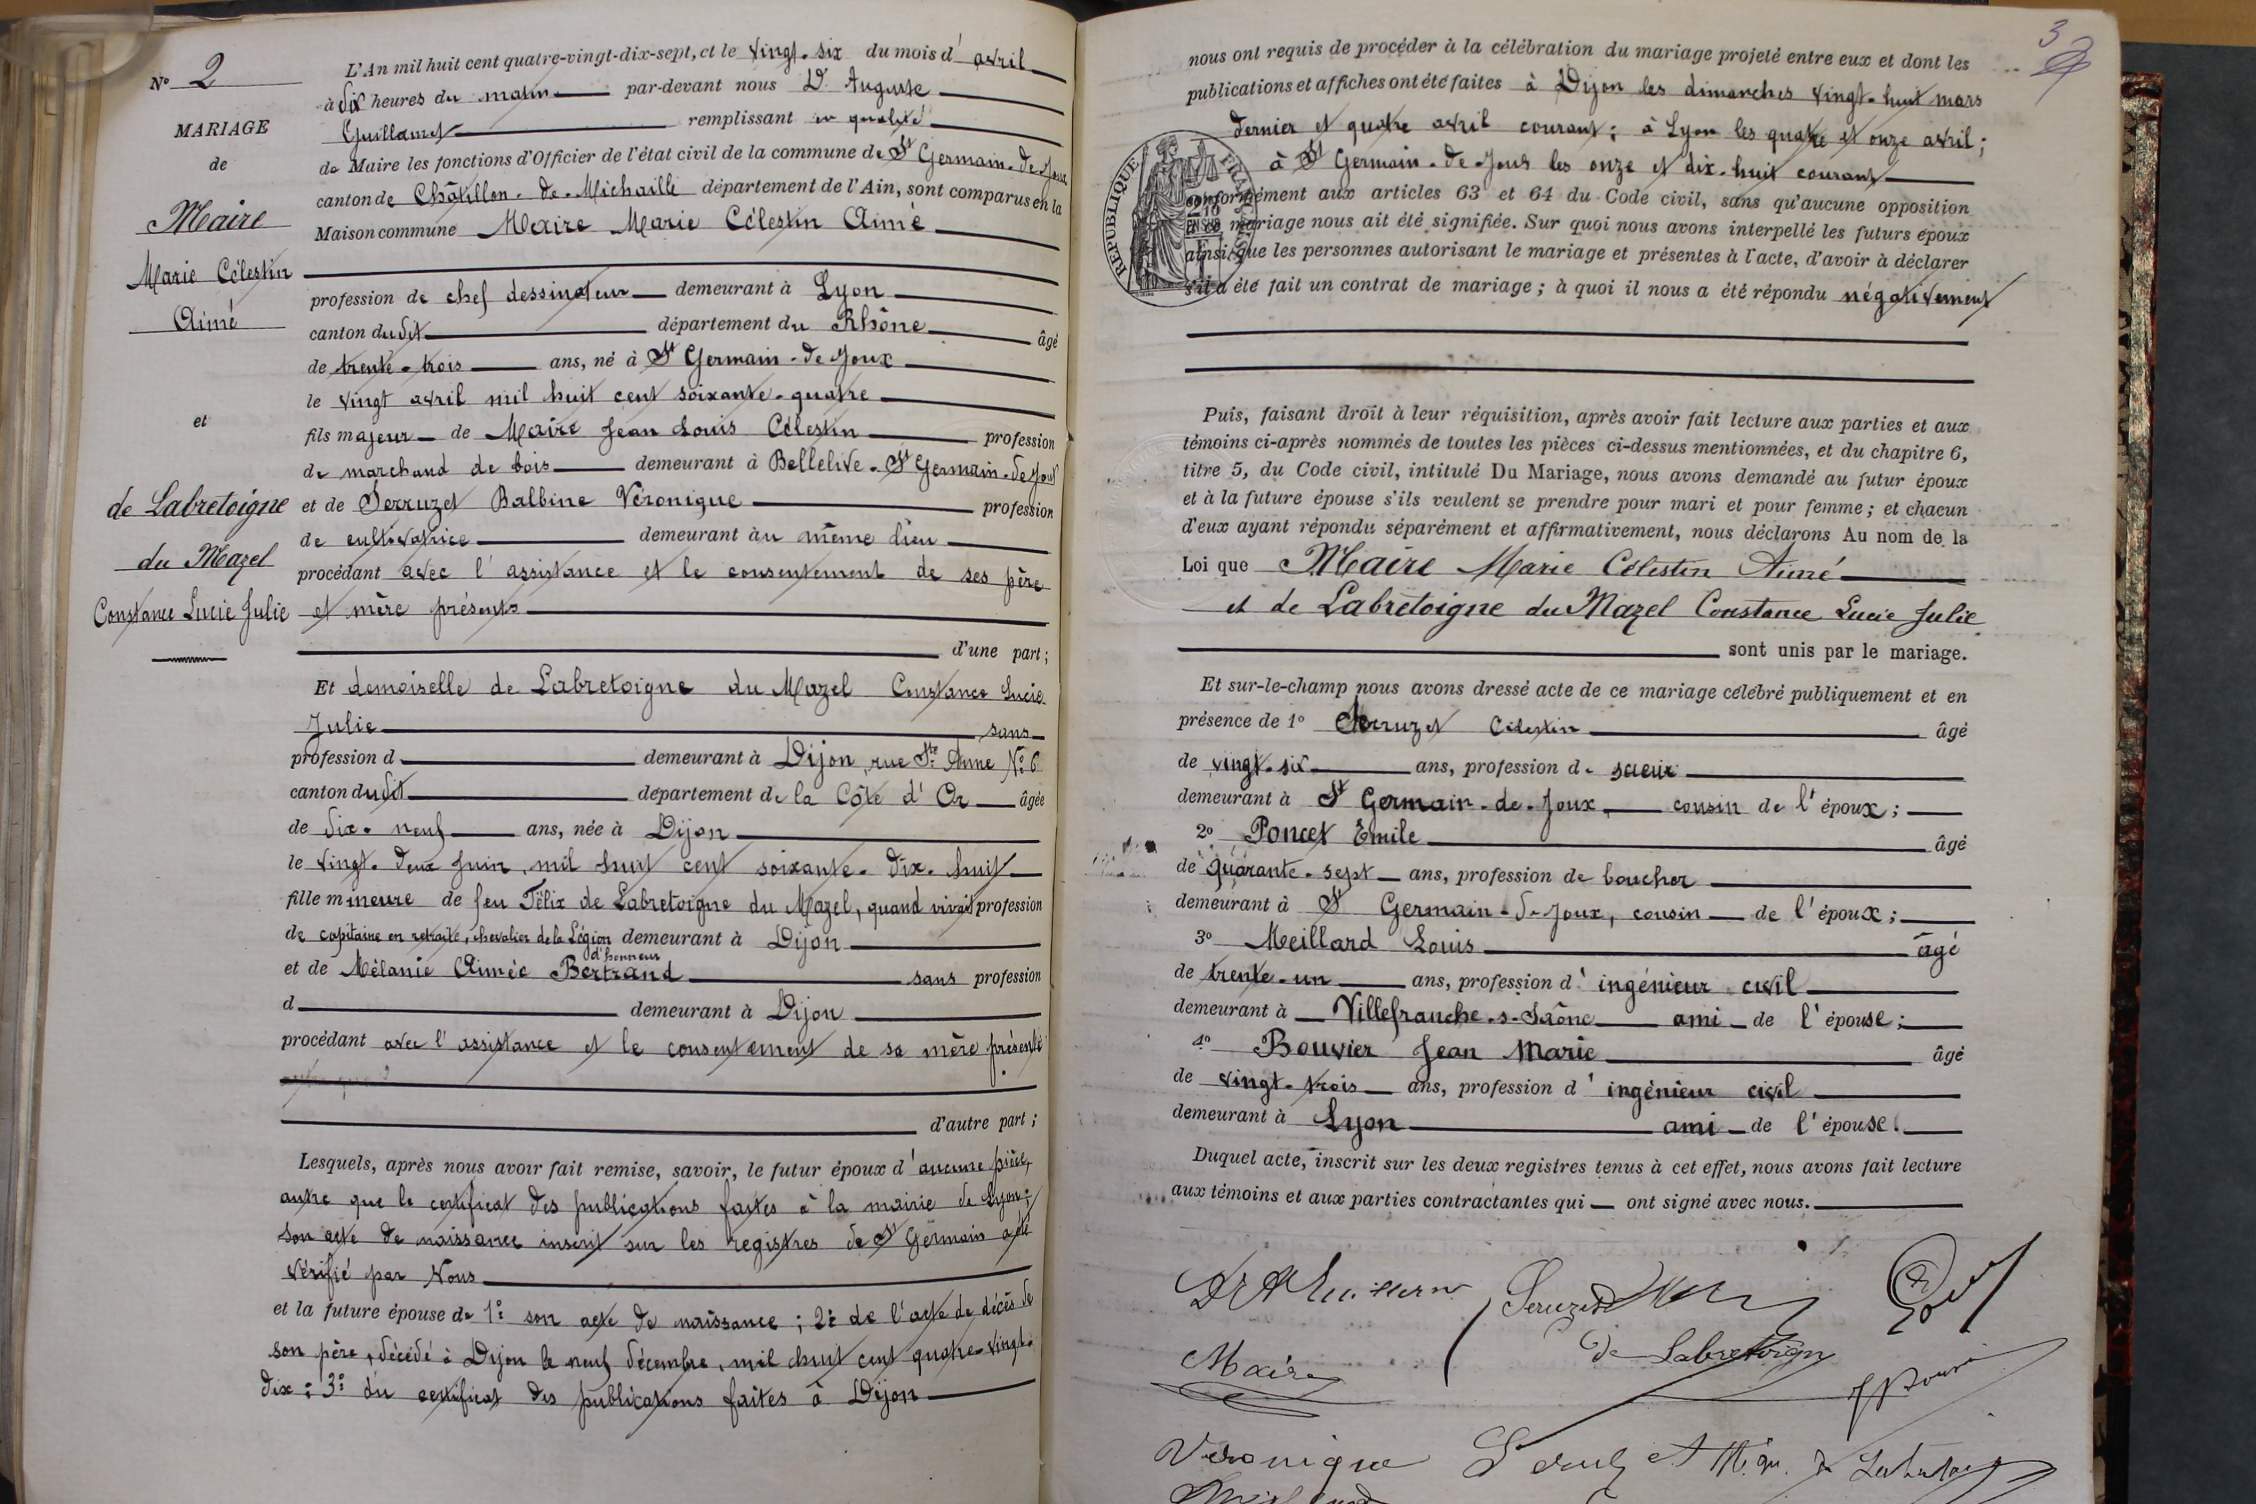 N° 2
MARIAGE
de
Maire
Marie Célestin
Aimé
et
de Labretoigne
du Mazel
Constance Lucie Julie
L'An mil huit cent quatre-vingt-dix-sept, et le vingt-six du mois d'avril
à dix heures du matin par-devant nous Dr Auguste
Guillamet remplissant en qualité
de Maire les fonctions d'Officier de l'état civil de la commune de St Germain-de-Joux
canton de Châtillon-de-Michaille département de l'Ain, sont comparus en la
Maison commune Maire Marie Célestin Aimé
profession de chef dessinateur demeurant à Lyon
canton dudit département du Rhône âgé
de trente-trois ans, né à St Germain-de-Joux
le vingt avril mil huit cent soixante-quatre
fils majeur de Maire Jean Louis Célestin profession
de marchand de bois demeurant à Bellerive-St Germain-de-Joux
et de Serruzet Balbine Véronique profession
de cultivatrice demeurant au même lieu
procédant avec l'assistance et le consentement de ses père
et mère présents
d'une part;
Et demoiselle de Labretoigne du Mazel Constance Lucie
Julie sans
profession d demeurant à Dijon, rue Ste Anne N° 6
canton dudit département de la Côte d'Or âgée
de dix-neuf ans, née à Dijon
le vingt-deux juin, mil huit cent soixante-dix-huit
fille mineure de feu Félix de Labretoigne du Mazel, quand vivait profession
de capitaine en retraite, chevalier de la Légion d'honneur demeurant à Dijon
et de Mélanie Aimée Bertrand sans profession
d demeurant à Dijon
procédant avec l'assistance et le consentement de sa mère présente
d'autre part;
Lesquels, après nous avoir fait remise, savoir, le futur époux d'aucune pièce,
autre que le certificat des publications faites à la mairie de Lyon;
son acte de naissance inscrit sur les registres de St Germain a été
vérifié par Nous
et la future épouse de 1° son acte de naissance; 2° de l'acte de décès de
son père, décédé à Dijon le neuf décembre, mil huit cent quatre-vingt-
dix; 3° du certificat des publications faites à Dijon
3
nous ont requis de procéder à la célébration du mariage projeté entre eux et dont les
publications et affiches ont été faites à Dijon les dimanches vingt-huit mars
dernier et quatre avril courant; à Lyon les quatre et onze avril;
à St Germain-de-Joux les onze et dix-huit courant
conformément aux articles 63 et 64 du Code civil, sans qu'aucune opposition
à ce mariage nous ait été signifiée. Sur quoi nous avons interpellé les futurs époux
ainsi que les personnes autorisant le mariage et présentes à l'acte, d'avoir à déclarer
s'il a été fait un contrat de mariage; à quoi il nous a été répondu négativement
RÉPUBLIQUE FRANÇAISE
Puis, faisant droit à leur réquisition, après avoir fait lecture aux parties et aux
témoins ci-après nommés de toutes les pièces ci-dessus mentionnées, et du chapitre 6,
titre 5, du Code civil, intitulé Du Mariage, nous avons demandé au futur époux
et à la future épouse s'ils veulent se prendre pour mari et pour femme; et chacun
d'eux ayant répondu séparément et affirmativement, nous déclarons Au nom de la
Loi que Maire Marie Célestin Aimé
et de Labretoigne du Mazel Constance Lucie Julie
sont unis par le mariage.
Et sur-le-champ nous avons dressé acte de ce mariage célébré publiquement et en
présence de 1° Serruzet Célestin âgé
de vingt-six ans, profession de scieur
demeurant à St Germain-de-Joux, cousin de l'époux;
2° Poncet Emile âgé
de quarante-sept ans, profession de boucher
demeurant à St Germain-de-Joux, cousin de l'époux;
3° Meillard Louis âgé
de trente-un ans, profession d'ingénieur civil
demeurant à Villefranche-s-Saône ami de l'épouse;
4° Bouvier Jean Marie âgé
de vingt-trois ans, profession d'ingénieur civil
demeurant à Lyon ami de l'épouse.
Duquel acte, inscrit sur les deux registres tenus à cet effet, nous avons fait lecture
aux témoins et aux parties contractantes qui ont signé avec nous.
Maire
de Labretoign
Véronique